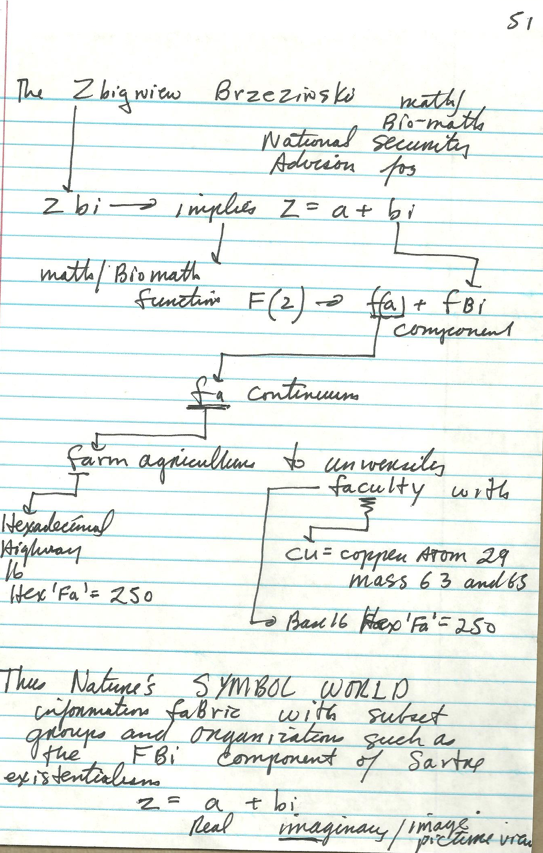 51
The Zbigniew Brzezinski math/
Bio-math
National Security
Advison for
Z bi → implies Z = a + bi
math/Biomath
function F(z) → f(a) + fBi
component
fa continuum
farm agriculture to university
faculty with
Hexadecimal
Highway
16
Hex 'Fa' = 250
Cu = copper Atom 29
mass 63 and 65
→ Base 16 Hex 'Fa' = 250
Thus Nature's SYMBOL WORLD
information faBric with subset
groups and organizations such as
the FBi component of Sartre
existentialism
z = a + bi
Real imaginary/image
picture view